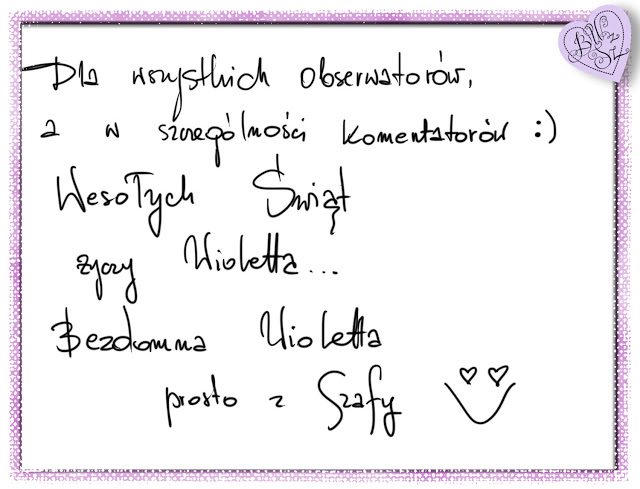 Dla wszystkich obserwatorów,
a w szczególności komentatorów :)
Wesołych Świąt
życzy Wioletta...
Bezdomna Wioletta
prosto z Szafy